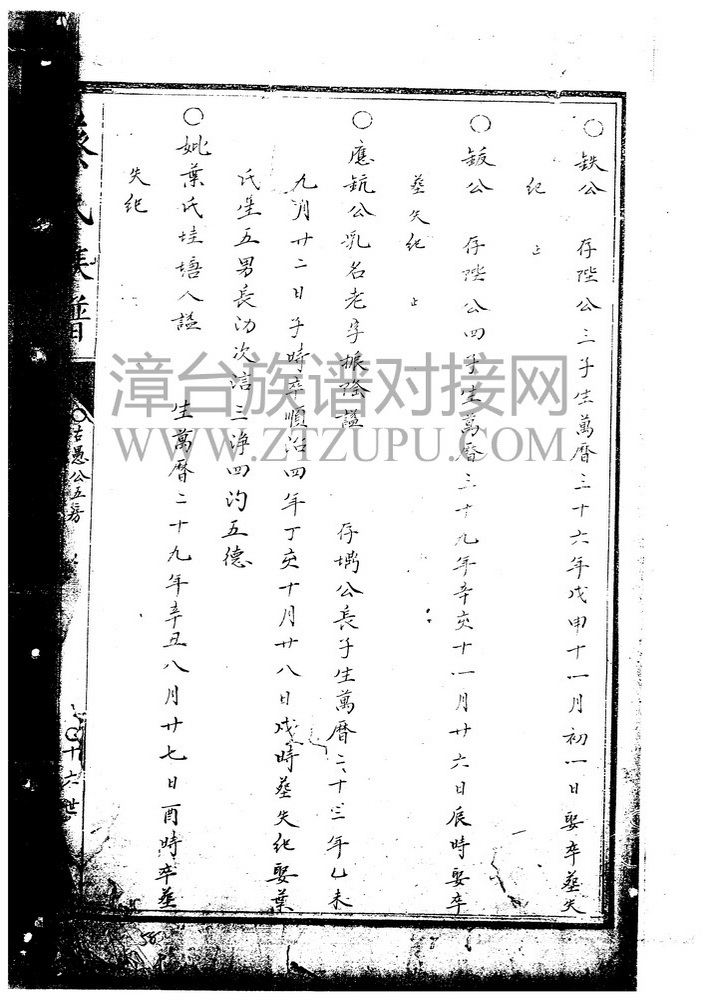 ○鉄公 存陛公三子生萬曆三十六年戊申十一月初一日娶卒塟失
紀止
○鈑公 存陛公四子生萬曆三十九年辛亥十一月廿六日辰時娶卒
塟失紀止
○應鈧公乳名老字振隆謚 存公長子生萬曆二十三年乙未
九月廿二日子時卒順治四年丁亥十月廿八日戌時塟失紀娶葉
氏生五男長次三淨四汋五德
○妣葉氏圭塘人謚 生萬曆二十九年辛丑八月廿七日酉時卒塟
失紀
蔡氏族譜
○古愚公五房
○十六世
58
漳台族谱对接网
WWW.ZTZUPU.COM